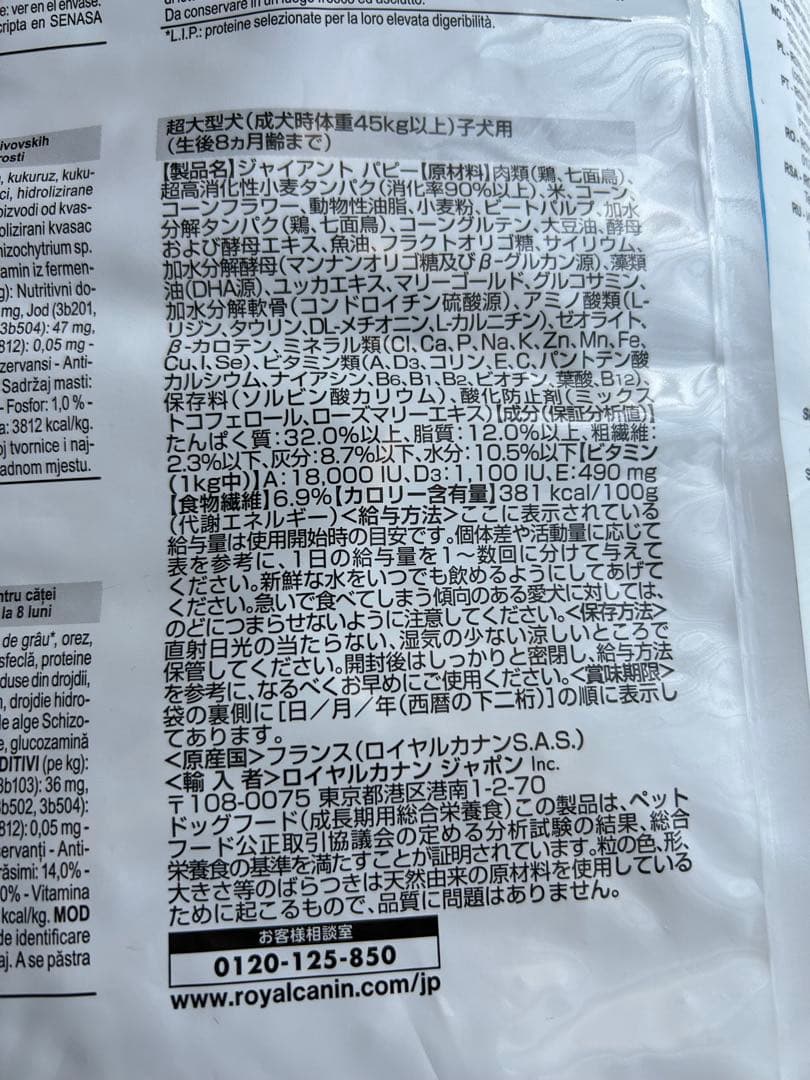 : ver en el envase.
cripta en SENASA
Da conservare in un luogo fresco ed asciutto.
*L.I.P.: proteine selezionate per la loro elevata digeribilità.
ivovskih
rosti
, kukuruz, kuku-
ci, hidrolizirane
oizvodi od kvas-
olizirani kvasac
hizochytrium sp.
amin iz fermen-
g): Nutritivni do-
mg, Jod (3b201,
3b504): 47 mg,
812): 0,05 mg -
zervansi - Anti-
Sadržaj masti:
- Fosfor: 1,0 % -
a: 3812 kcal/kg.
oj tvornice i naj-
adnom mjestu.
超大型犬(成犬時体重45kg以上)子犬用
(生後8ヵ月齢まで)
【製品名】ジャイアント パピー【原材料】肉類(鶏、七面鳥)、
超高消化性小麦タンパク(消化率90%以上)、米、コーン、
コーンフラワー、動物性油脂、小麦粉、ビートパルプ、加水
分解タンパク(鶏、七面鳥)、コーングルテン、大豆油、酵母
および酵母エキス、魚油、フラクトオリゴ糖、サイリウム、
加水分解酵母(マンナンオリゴ糖及びβ-グルカン源)、藻類
油(DHA源)、ユッカエキス、マリーゴールド、グルコサミン、
加水分解軟骨(コンドロイチン硫酸源)、アミノ酸類(L-
リジン、タウリン、DL-メチオニン、L-カルニチン)、ゼオライト、
β-カロテン、ミネラル類(Cl、Ca、P、Na、K、Zn、Mn、Fe、
Cu、I、Se)、ビタミン類(A、D3、コリン、E、C、パントテン酸
カルシウム、ナイアシン、B6、B1、B2、ビオチン、葉酸、B12)、
保存料(ソルビン酸カリウム)、酸化防止剤(ミックス
トコフェロール、ローズマリーエキス)【成分(保証分析値)】
たんぱく質:32.0%以上、脂質:12.0%以上、粗繊維:
2.3%以下、灰分:8.7%以下、水分:10.5%以下【ビタミン
(1kg中)】A:18,000 IU、D3:1,100 IU、E:490 mg
【食物繊維】6.9%【カロリー含有量】381 kcal/100g
(代謝エネルギー)<給与方法>ここに表示されている
給与量は使用開始時の目安です。個体差や活動量に応じて
表を参考に、1日の給与量を1〜数回に分けて与えて
ください。新鮮な水をいつでも飲めるようにしてあげて
ください。急いで食べてしまう傾向のある愛犬に対しては、
のどにつまらせないように注意してください。<保存方法>
直射日光の当たらない、湿気の少ない涼しいところで
保管してください。開封後はしっかりと密閉し、給与方法
を参考に、なるべくお早めにご使用ください。<賞味期限>
袋の裏側に [日/月/年(西暦の下二桁)]の順に表示し
てあります。
<原産国>フランス(ロイヤルカナンS.A.S.)
<輸 入 者>ロイヤルカナン ジャポン Inc.
〒108-0075 東京都港区港南1-2-70
ドッグフード(成長期用総合栄養食)この製品は、ペット
フード公正取引協議会の定める分析試験の結果、総合
栄養食の基準を満たすことが証明されています。粒の色、形、
大きさ等のばらつきは天然由来の原材料を使用している
ために起こるもので、品質に問題はありません。
お客様相談室
0120-125-850
www.royalcanin.com/jp
ntru căței
la 8 luni
de grâu*, orez,
sfeclă, proteine
duse din drojdii,
n, drojdie hidro-
le alge Schizo-
e, glucozamină
DITIVI (pe kg):
3b103): 36 mg,
3b502, 3b504):
812): 0,05 mg -
servanți - Anti-
răsimi: 14,0% -
0% - Vitamina
kcal/kg. MOD
de identificare
aj. A se păstra